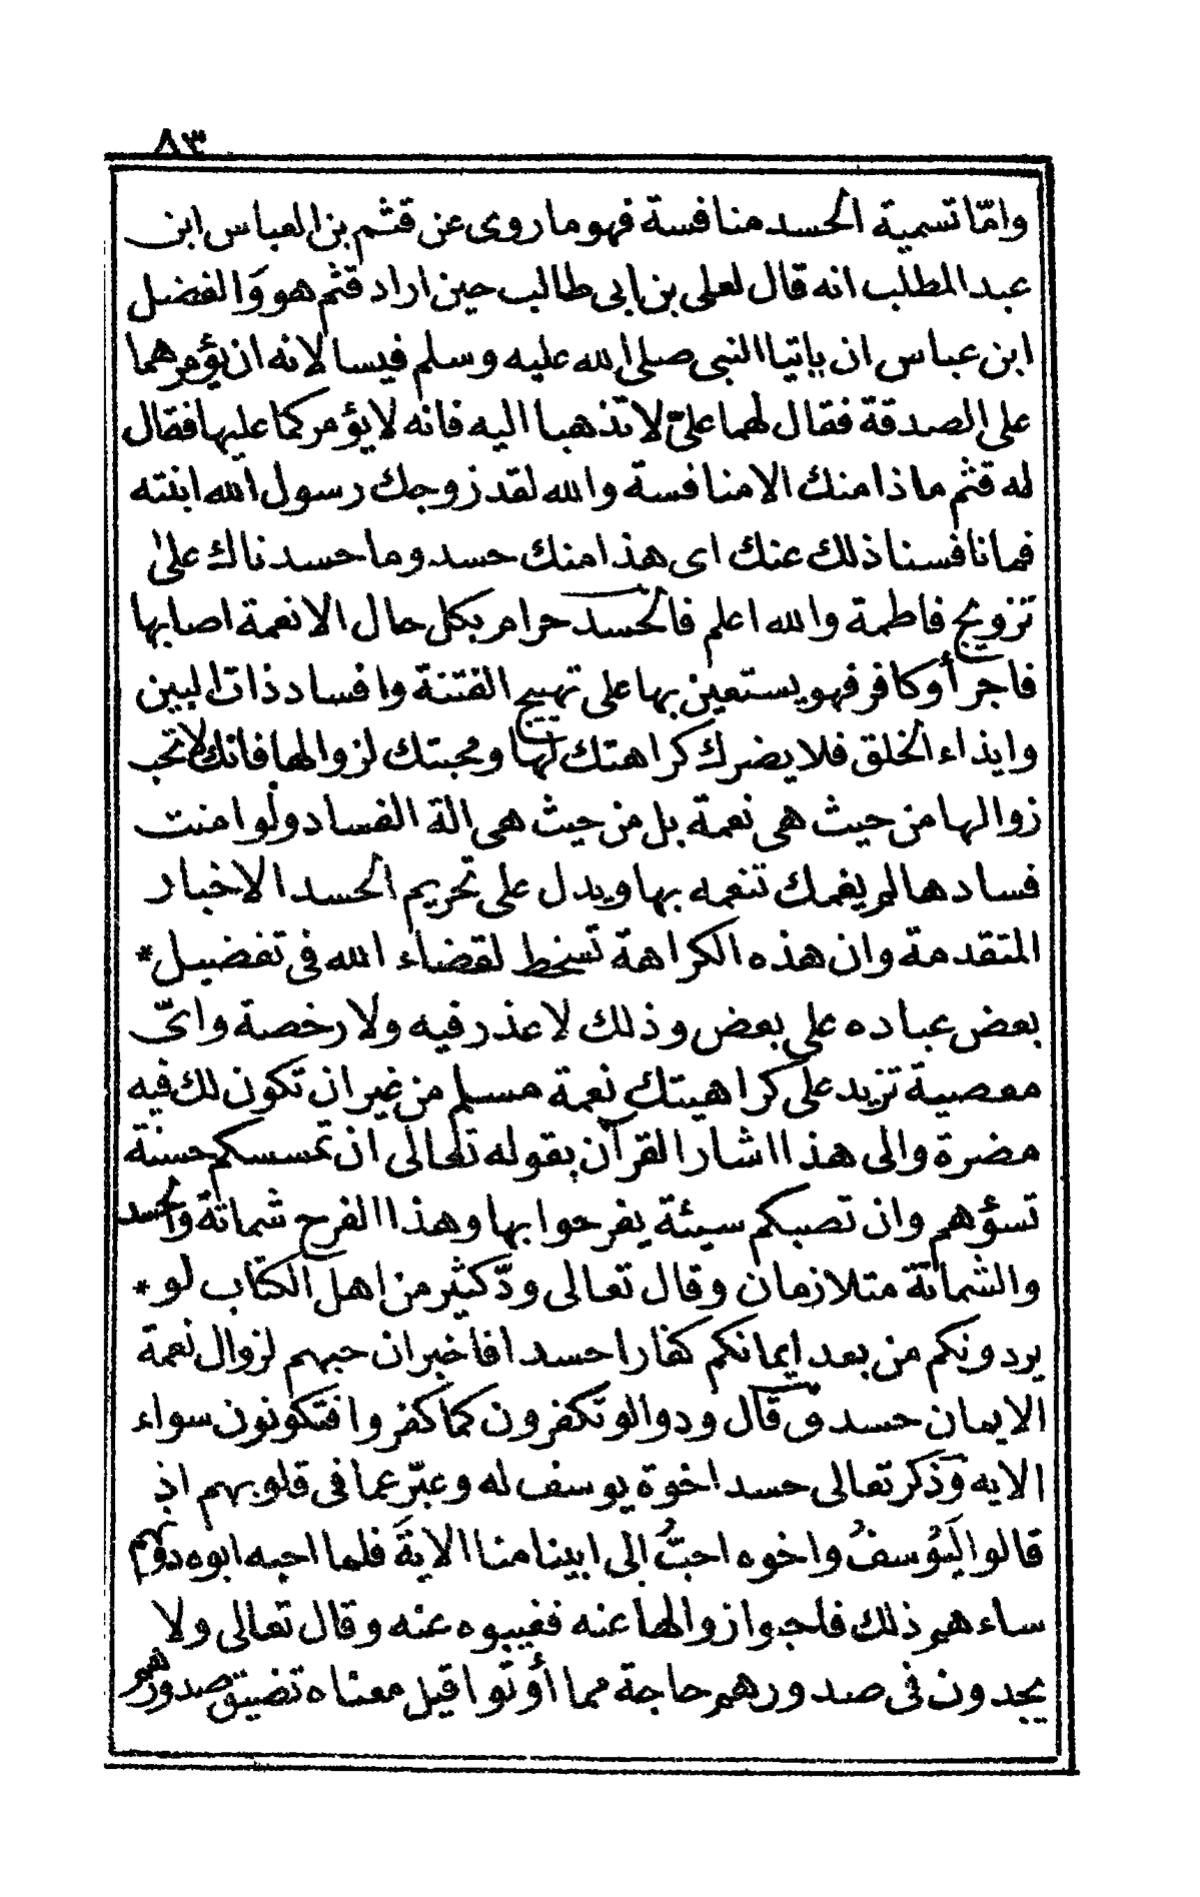 ٨٣
وامّا تسمية الحسد منافسة فهو ما روى عن قثم بن العباس ابن
عبد المطلب انه قال لعلى بن ابى طالب حين اراد قثم هو وَالفضل
ابن عباس ان ياتيا النبى صلى الله عليه وسلم فيسالانه ان يؤمرهما
على الصدقة فقال لهما علىّ لا تذهبا اليه فانه لا يؤمركما عليها فقال
له قثم ما ذا منك الا منافسة والله لقد زوجك رسول الله ابنته
فما نافسنا ذلك عنك اى هذا منك حسد وما حسدناك على
تزويج فاطمة والله اعلم فالحسد حرام بكل حال الا نعمة اصابها
فاجر أو كافر فهو يستعين بها على تهييج الفتنة وافساد ذات البين
وايذاء الخلق فلا يضرك كراهتك لها ومحبتك لزوالها فانك لا تحب
زوالها من حيث هى نعمة بل من حيث هى الة الفساد ولو امنت
فسادها لم يغمك تنعمه بها ويدل على تحريم الحسد الاخبار
المتقدمة وان هذه الكراهة تسخط لقضاء الله فى تفضيل *
بعض عباده على بعض وذلك لا عذر فيه ولا رخصة واىّ
معصية تزيد على كراهيتك نعمة مسلم من غير ان تكون لك فيه
مضرة والى هذا اشار القرآن بقوله تعالى ان تمسسكم حسنة
تسؤهم وان تصبكم سيئة يفرحوا بها وهذا الفرح شماتة والحسد
والشماتة متلازمان وقال تعالى ودّ كثير من اهل الكتاب لو *
يردونكم من بعد ايمانكم كفارا حسدا فاخبر ان حبهم لزوال نعمة
الايمان حسد وقال ودوا لو تكفرون كما كفروا فتكونون سواء
الايه وذكر تعالى حسد اخوة يوسف له وعبّر عما فى قلوبهم اذ
قالوا لَيُوسفُ واخوه احبُّ الى ابينا منا الايةَ فلما احبه ابوه دونهم
ساءهم ذلك فاحبوا زوالها عنه فغيبوه عنه وقال تعالى ولا
يجدون فى صدورهم حاجة مما أُوتوا قيل معناه تضيق صدورهم